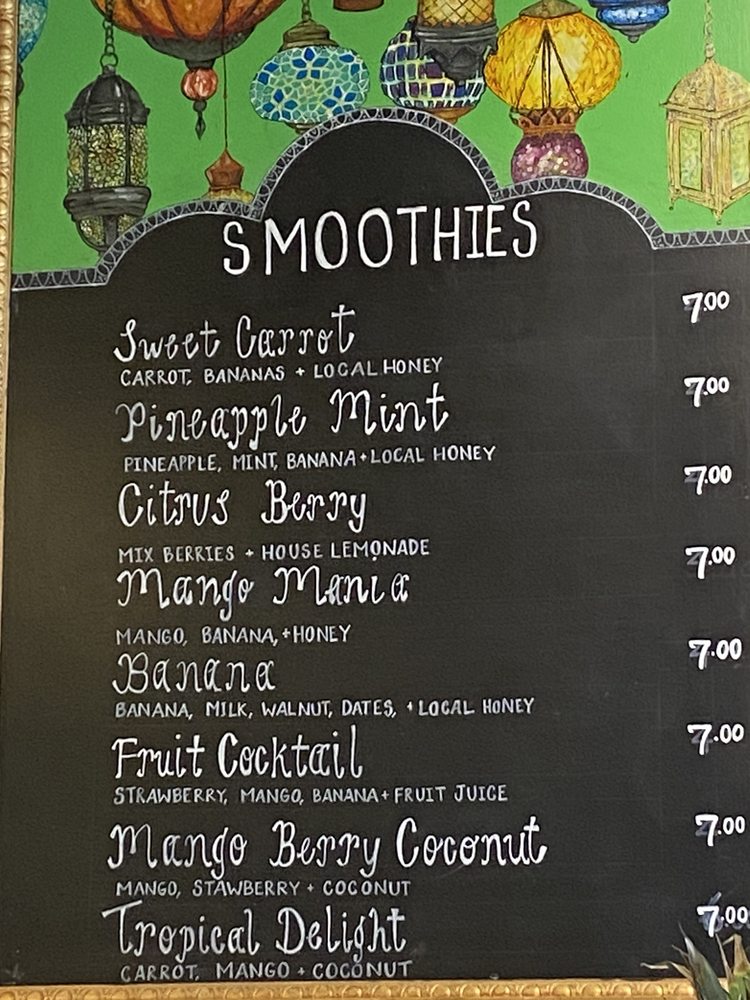 SMOOTHIES
Sweet Carrot 7.00
CARROT, BANANAS + LOCAL HONEY
Pineapple Mint 7.00
PINEAPPLE, MINT, BANANA + LOCAL HONEY
Citrus Berry 7.00
MIX BERRIES + HOUSE LEMONADE
Mango Mania 7.00
MANGO, BANANA, + HONEY
Banana 7.00
BANANA, MILK, WALNUT, DATES, + LOCAL HONEY
Fruit Cocktail 7.00
STRAWBERRY, MANGO, BANANA + FRUIT JUICE
Mango Berry Coconut 7.00
MANGO, STAWBERRY + COCONUT
Tropical Delight 7.00
CARROT, MANGO + COCONUT